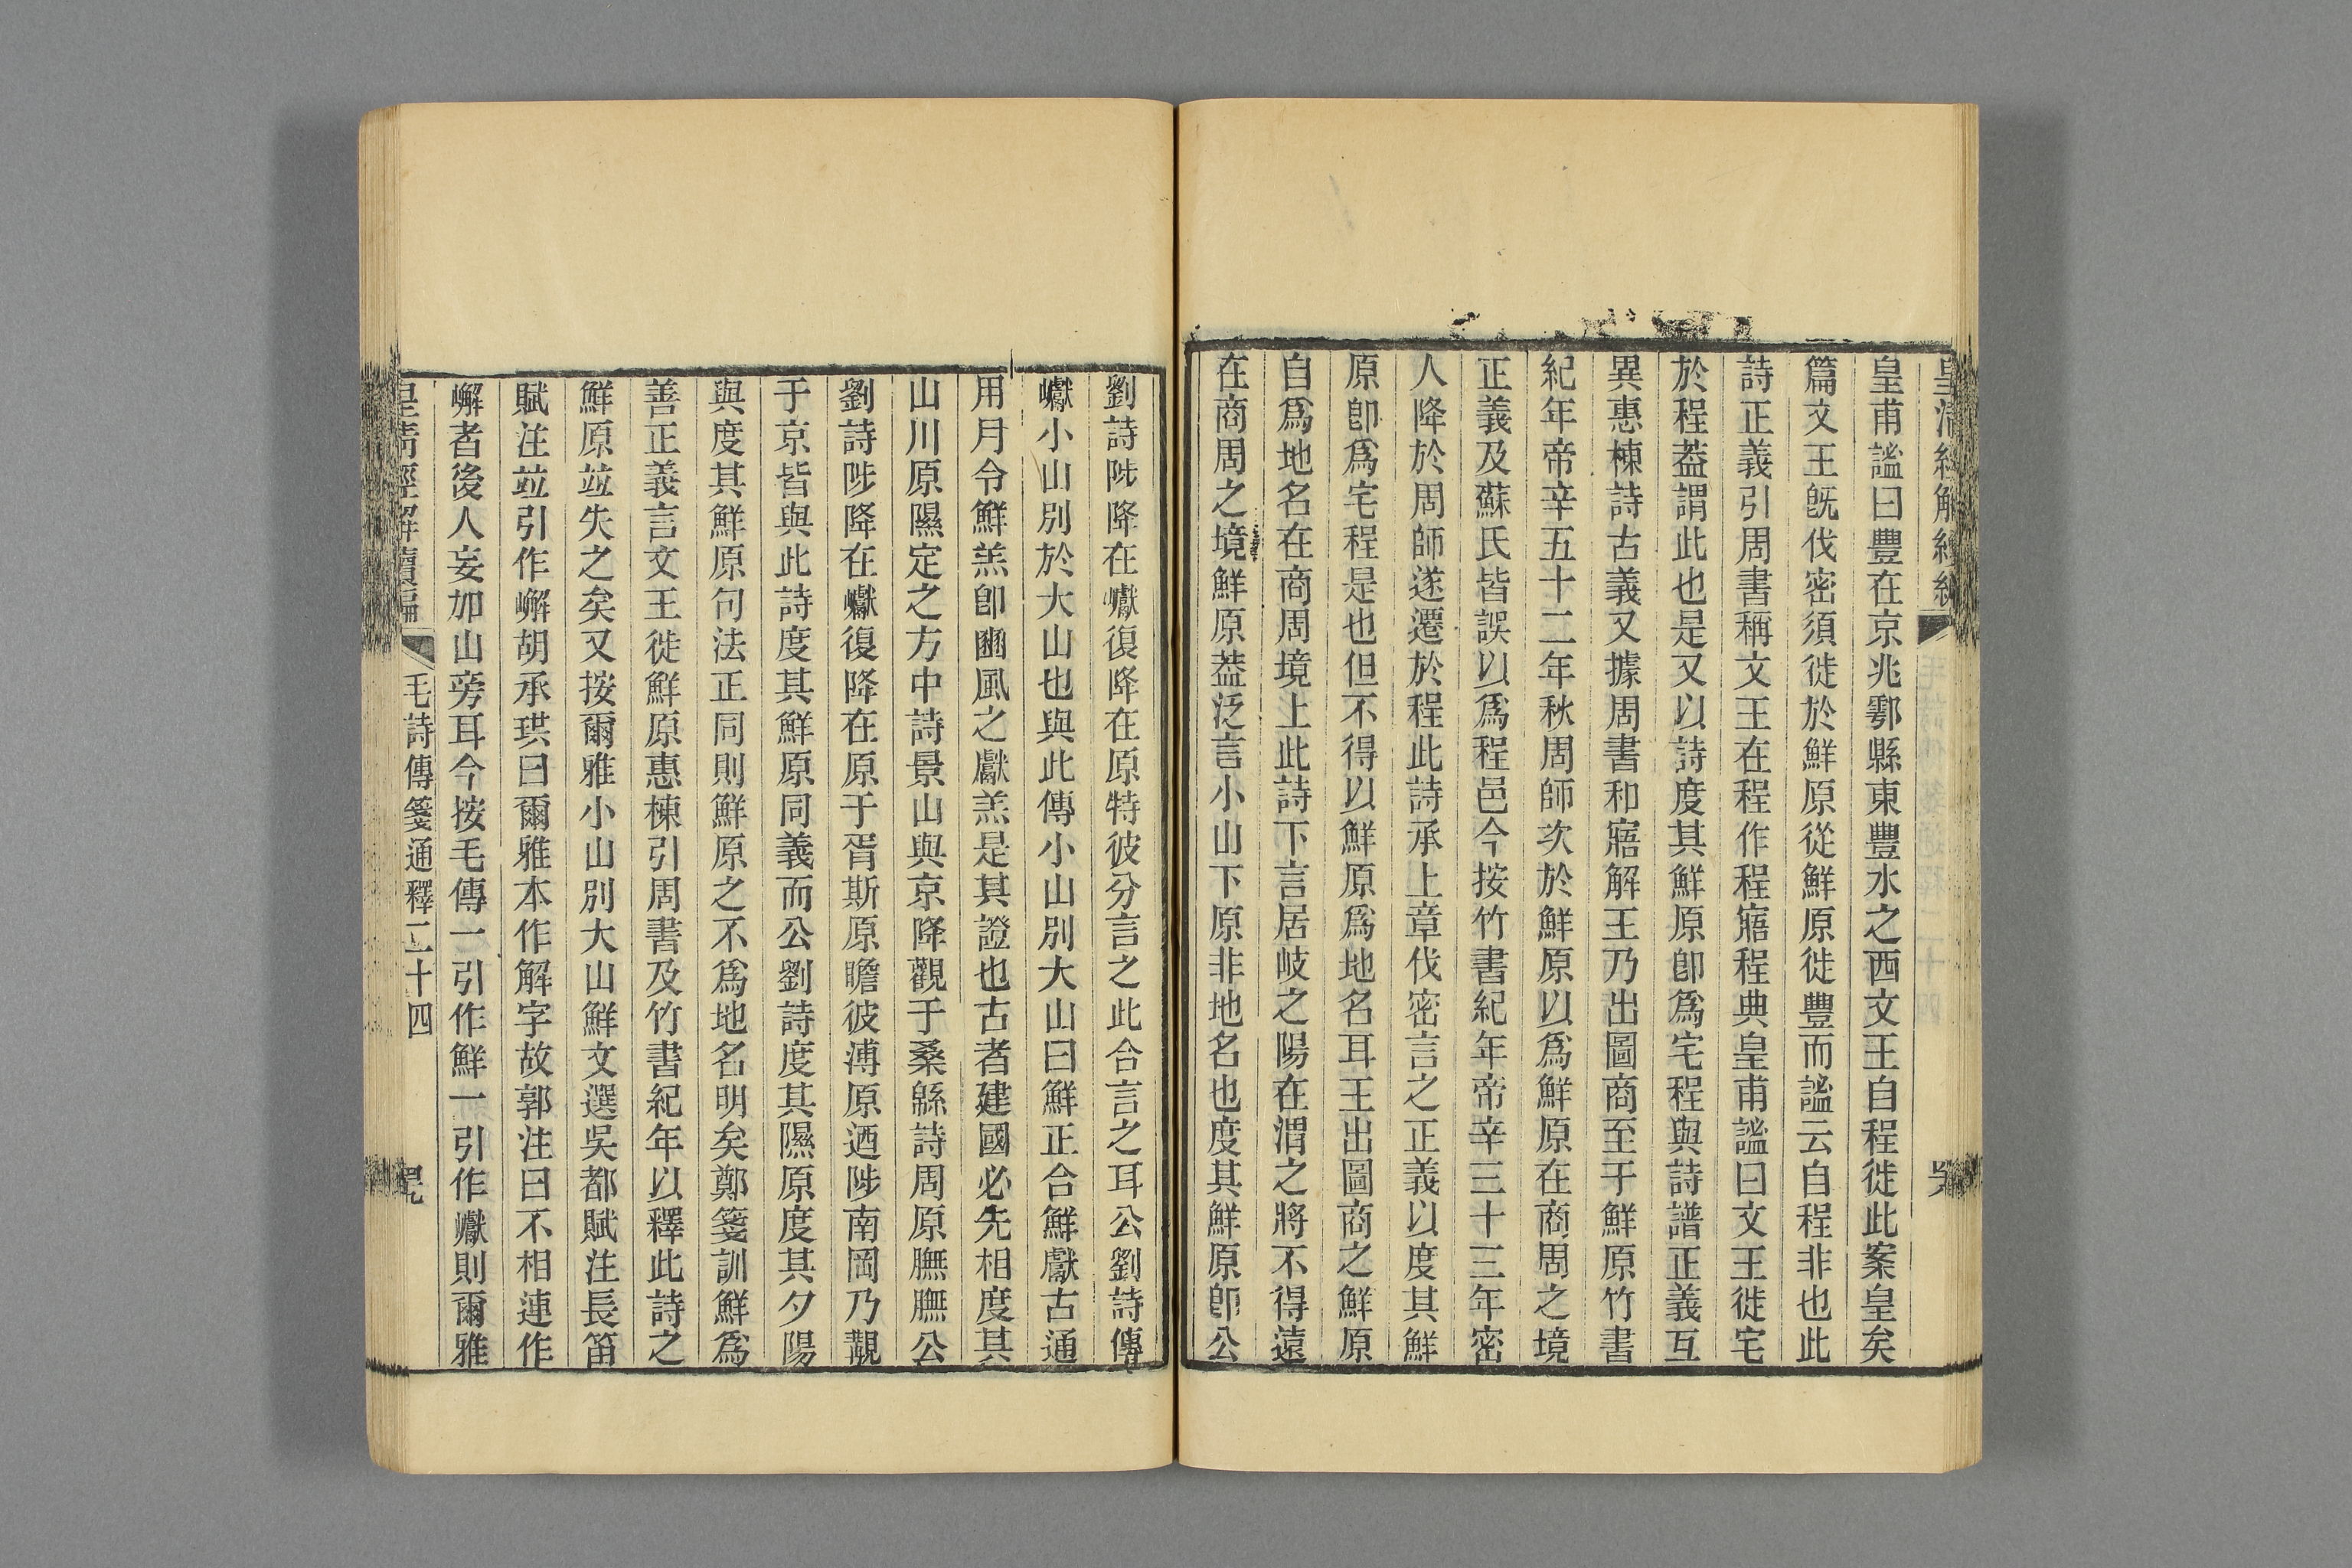 皇甫謐曰豐在京兆鄠縣東豐水之西文王自程徙此案皇矣
篇文王旣伐密須徙於鮮原從鮮原徙豐而謐云自程非也此
詩正義引周書稱文王在程作程寤程典皇甫謐曰文王徙宅
於程葢謂此也是又以詩度其鮮原卽爲宅程與詩譜正義互
異惠棟詩古義又據周書和寤解王乃出圖商至于鮮原竹書
紀年帝辛五十二年秋周師次於鮮原以爲鮮原在商周之境
正義及蘇氏皆誤以爲程邑今按竹書紀年帝辛三十三年密
人降於周師遂遷於程此詩承上章伐密言之正義以度其鮮
原卽爲宅程是也但不得以鮮原爲地名耳王出圖商之鮮原
自爲地名在商周境上此詩下言居岐之陽在渭之將不得遠
在商周之境鮮原葢泛言小山下原非地名也度其鮮原卽公
劉詩陟降在巘復降在原特彼分言之此合言之耳公劉詩傳
巘小山別於大山也與此傳小山別大山曰鮮正合鮮獻古通
用月令鮮羔卽豳風之獻羔是其證也古者建國必先相度其
山川原隰定之方中詩景山與京降觀于桑緜詩周原膴膴公
劉詩陟降在巘復降在原于胥斯原瞻彼溥原迺陟南岡乃觀
于京皆與此詩度其鮮原同義而公劉詩度其隰原度其夕陽
與度其鮮原句法正同則鮮原之不爲地名明矣鄭箋訓鮮爲
善正義言文王徙鮮原惠棟引周書及竹書紀年以釋此詩之
鮮原竝失之矣又按爾雅小山別大山鮮文選吳都賦注長笛
賦注竝引作嶰胡承珙曰爾雅本作解字故郭注曰不相連作
嶰者後人妄加山旁耳今按毛傳一引作鮮一引作巘則爾雅
皇清經解續編
毛詩傳箋通釋二十四